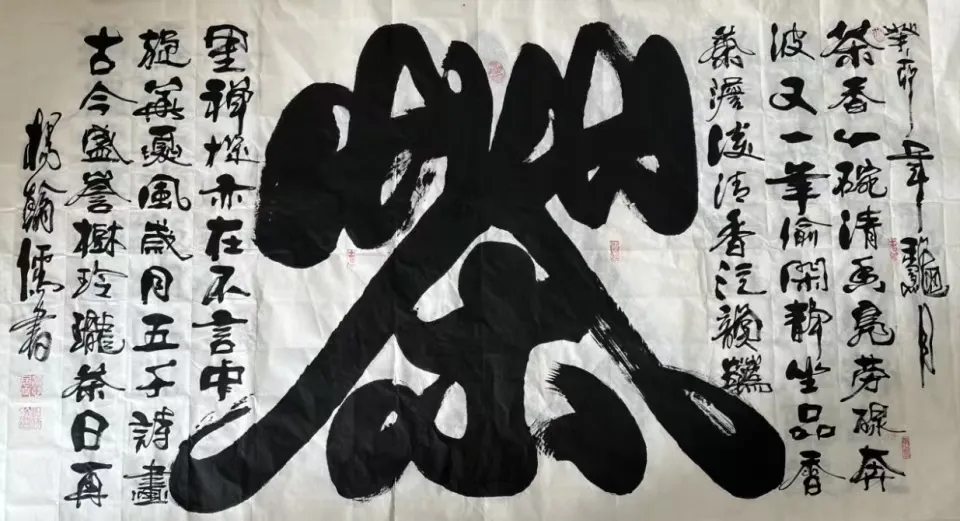 癸卯年月
茶香一碗清幽劳碌奔
波又一年偷閑静坐品香
茶清香泛韻
茶
里禪機亦在不言中
旋華夏風歲月五千詩畫
古今盛譽樹玲瓏茶日再
楊翰儒書